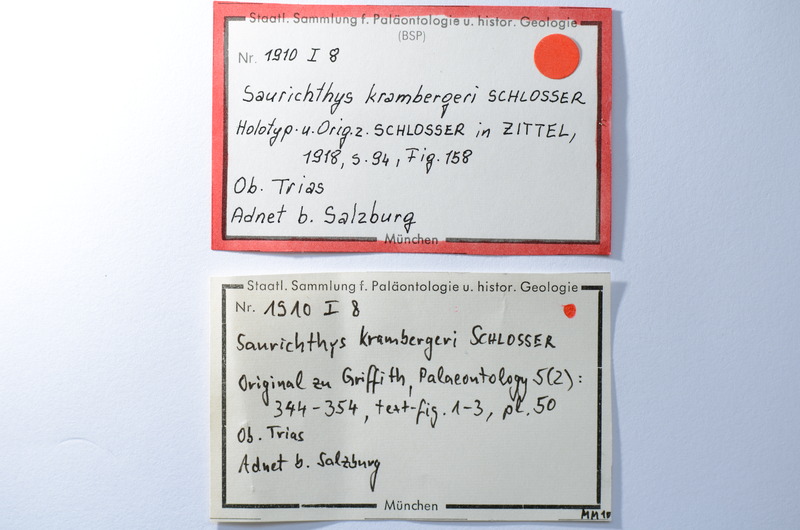 Staatl. Sammlung f. Paläontologie u. histor. Geologie
(BSP)
Nr. 1910 I 8
Saurichthys krambergeri SCHLOSSER
Holotyp. u. Orig. z. SCHLOSSER in ZITTEL,
1918, S. 94, Fig. 158
Ob. Trias
Adnet b. Salzburg
München
Staatl. Sammlung f. Paläontologie u. histor. Geologie
Nr. 1910 I 8
Saurichthys krambergeri SCHLOSSER
Original zu Griffith, Palaeontology 5(2):
344-354, text-fig. 1-3, pl. 50
Ob. Trias
Adnet b. Salzburg
München